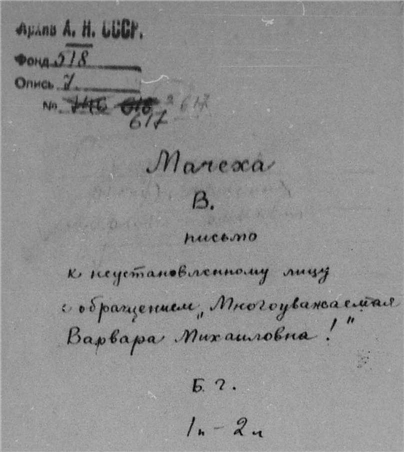 Архив А. Н. СССР.
Фонд 518
Опись 7
№ 617
617
Мачеха
В.
письмо
к неустановленному лицу
с обращением „Многоуважаемая
Варвара Михаиловна!"
Б. г.
1п – 2л